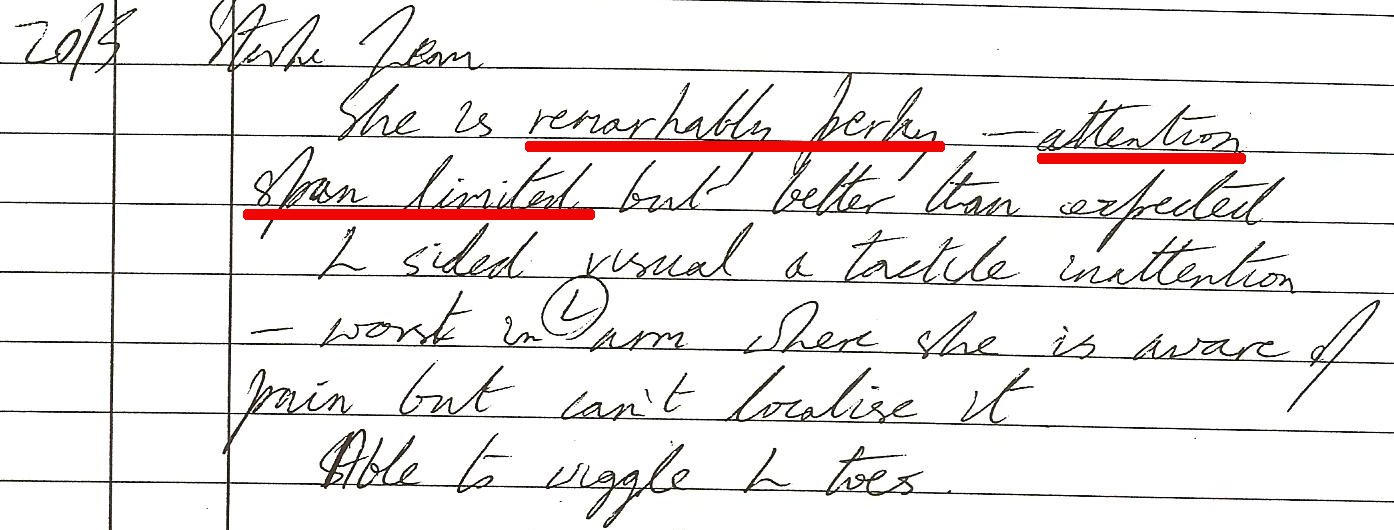 20/5 Stroke Team
She is remarkably perky - attention
span limited but better than expected
L sided visual & tactile inattention
- worst in Ⓛ arm where she is aware of
pain but can't localise it
Able to wiggle L toes.